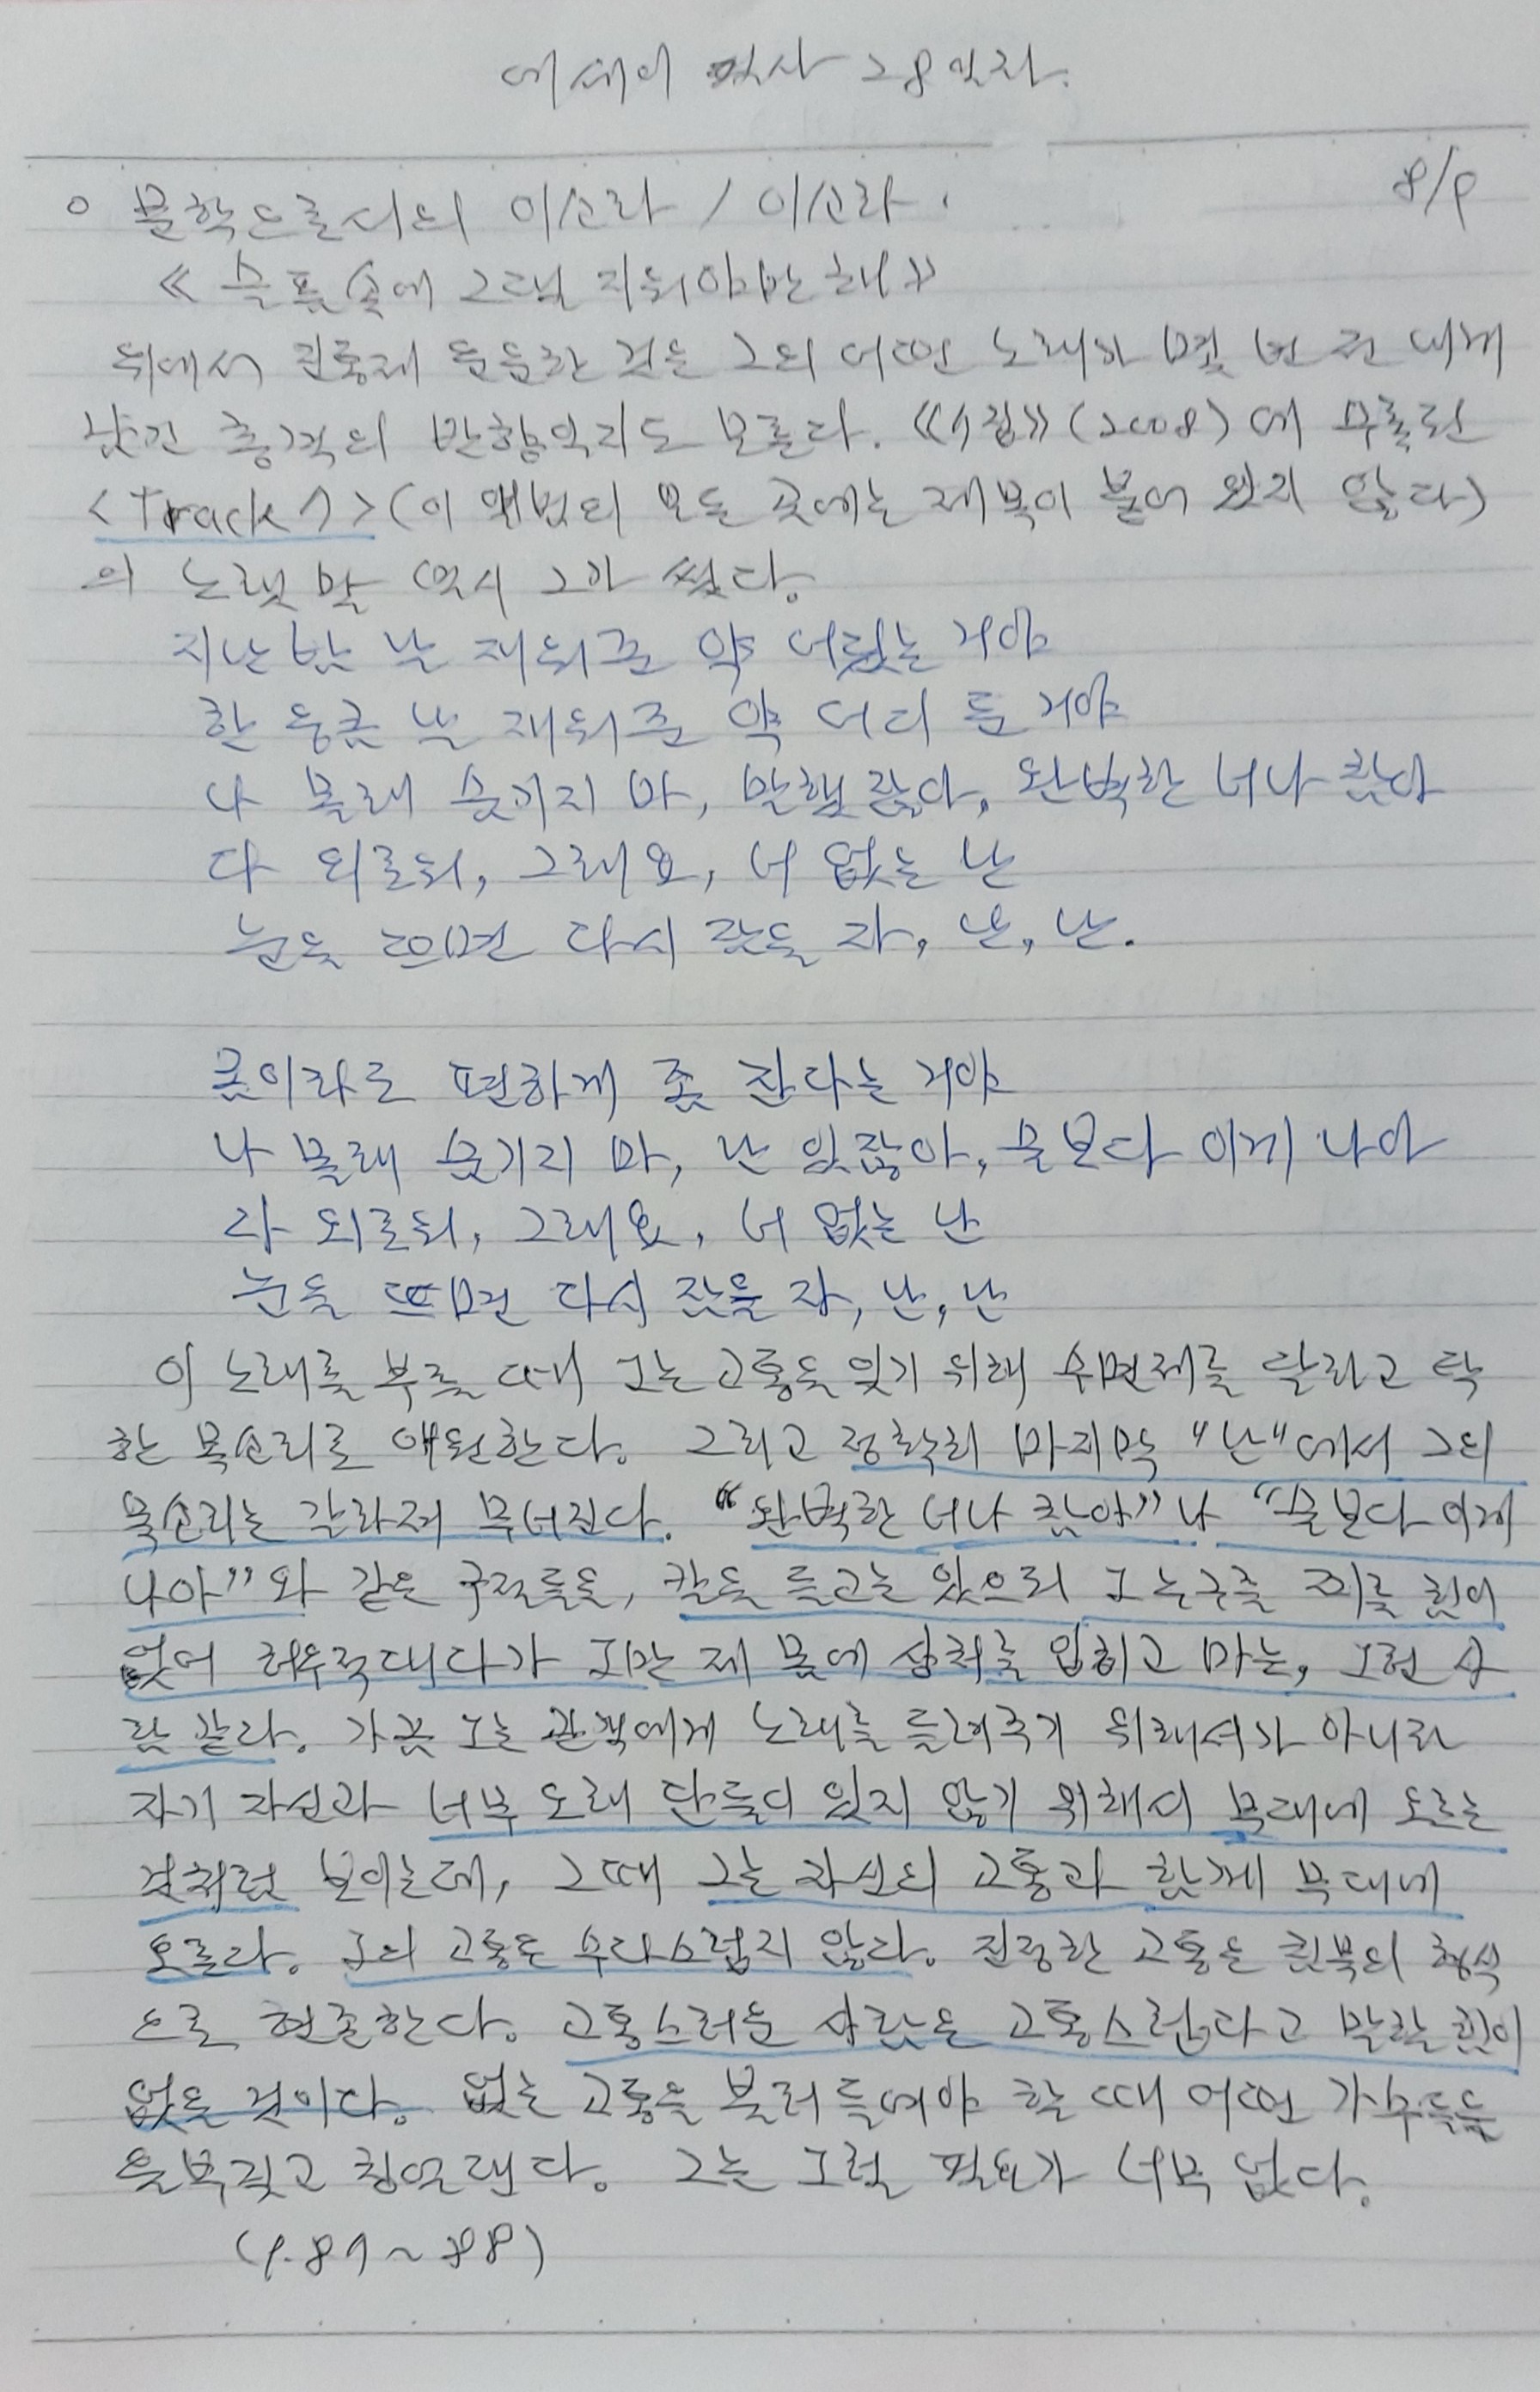 에세이 필사 28일차.
8/9
○ 문학으로서의 이소라 / 이소라.
《슬픔 속에 그댈 지워야만 해》
위에서 진통제 운운한 것은 그의 어떤 노래가 몇 년 전 내게
남긴 충격의 반향일지도 모른다. 《7집》(2008)에 수록된
<Track 7> (이 앨범의 모든 곡에는 제목이 붙어 있지 않다)
의 노랫말 역시 그가 썼다.
지난밤 날 재워준 약 어딨는 거야
한 움큼 날 재워준 약 어디 둔 거야
나 몰래 숨기지 마, 말했잖아, 완벽한 너나 참아
다 외로워, 그래요, 너 없는 난
눈을 뜨면 다시 잠을 자, 난, 난.
꿈이라도 편하게 좀 잔다는 거야
나 몰래 숨기지 마, 난 있잖아, 술보다 이게 나아
다 외로워, 그래요, 너 없는 난
눈을 뜨면 다시 잠을 자, 난, 난
이 노래를 부를 때 그는 고통을 잊기 위해 수면제를 달라고 탁
한 목소리로 애원한다. 그리고 정확히 마지막 "난"에서 그의
목소리는 갈라져 무너진다. "완벽한 너나 참아"나 "술보다 이게
나아"와 같은 구절들을, 칼을 들고는 있으되 그 누구를 찌를 힘이
없어 허우적대다가 그만 제 몸에 상처를 입히고 마는, 그런 사
람 같다. 가끔 그는 관객에게 노래를 들려주기 위해서가 아니라
자기 자신과 너무 오래 단둘이 있지 않기 위해서 무대에 오르는
것처럼 보이는데, 그때 그는 자신의 고통과 함께 무대에
오른다. 그의 고통은 수다스럽지 않다. 진정한 고통은 침묵의 형식
으로 현존한다. 고통스러운 사람은 고통스럽다고 말할 힘이
없을 것이다. 없는 고통을 불러들여야 할 때 어떤 가수들은
울부짖고 칭얼댄다. 그는 그럴 필요가 너무 없다.
(p.87~88)